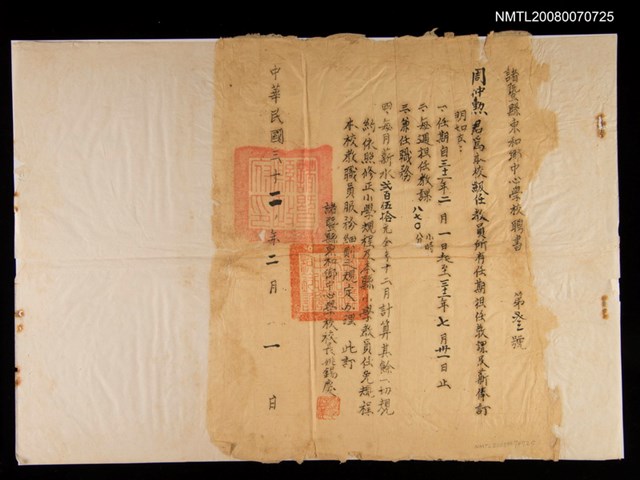 NMTL20080070725
諸暨縣東和鄉中心學校聘書 第叁號
周仲勲君爲本校級任教員所有任期担任教課及薪俸訂
明如左
一、任期自三十二年二月一日起至三十二年七月卅一日止
二、每週担任教課八七〇分 小時
三、兼任職務
四、每月薪水貳百伍拾元全年十二月計算其餘一切規
約依照修正小學規程及本縣小學教員任免規程
本校教職員服務細則之規定办理 此訂
諸暨縣東和鄉中心學校校長 錫慶
中華民國三十二年二月一日
NMTL20080070725